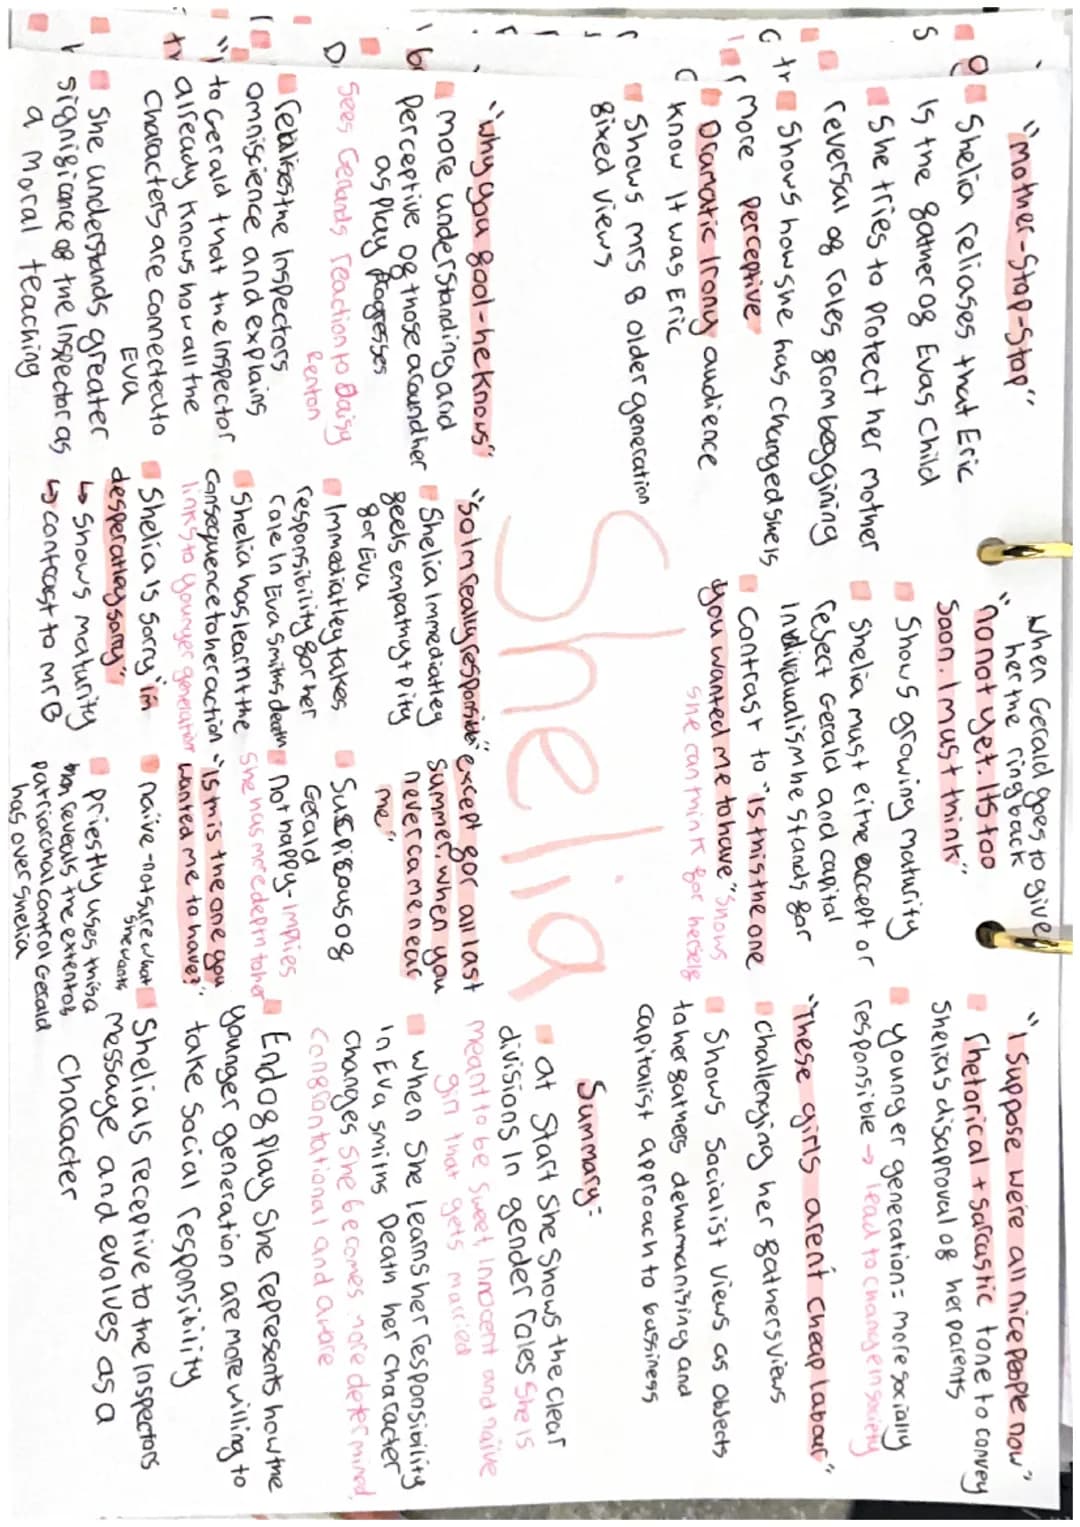 "mother-stop-stop"
Shelia reliases that Eric
is the father of Evas child
She tries to protect her mother
reversal of roles from beggining
Shows how she has changed she is
more perceptive
Dramatic irony audience
know it was Eric
Shows mrs B older generation
fixed views
"why you fool-he knows"
more understanding and
perceptive of those around her
as play progresses
sees Geralds reaction to Daisy
Renton
realises the inspectors
omniscience and explains
to Gerald that the inspector
already knows how all the
characters are connected to
Eva
She understands greater
significance of the inspector as
a moral teaching
when Gerald goes to give
her the ring back
"no not yet. Its too
soon. I must think"
Shows growing maturity
Shelia must either accept or
reject Gerald and capital
individualism he stands for
Contrast to "is this the one
you wanted me to have" shows
she can think for herself
Shelia
"so Im really responsible"
Shelia immediatley
feels empathy + pity
for Eva
Immediatley takes
responsibility for her
role in Eva Smiths death
Shelia has learnt the
consequence to her action
links to younger generation
Shelia is sorry "im
desperatley sorry"
↳ shows maturity
↳ contrast to mr B
"except for all last
summer, when you
never came near
me"
Suspicous of
Gerald
not happy- implies
she has more depth to her
"Is this the one you
wanted me to have?"
naiive-not sure what
she wants
priestly uses this
then reveals the extent of
patriarchal control Gerald
has over Shelia
"I suppose were all nice people now"
rhetorical + sarcastic tone to convey
Shelias disaproval of her parents
younger generation = more socially
responsible → lead to change in society
"These girls arent cheap labour"
challenging her fathers views
Shows socialist views as objects
to her fathers dehumanising and
capitalist approach to bussiness
Summary:
at start she shows the clear
divisions in gender roles she is
meant to be sweet, innocent and naiive
girl that gets married
when she learns her responsibility
in Eva smiths Death her character
changes she becomes more determined,
confrontational and aware
End of play she represents how the
younger generation are more willing to
take social responsibility
Shelia is receptive to the inspectors
message and evolves as a
character